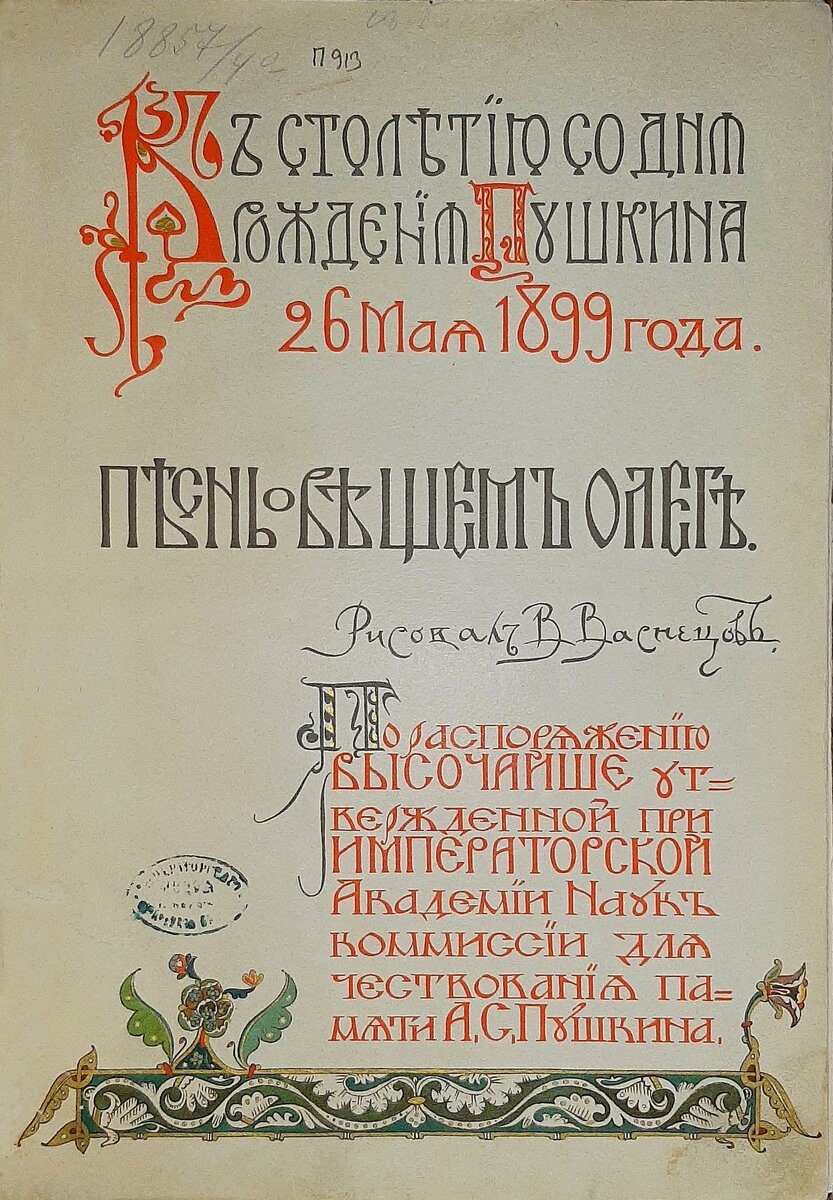 18857/ча
П913
Къ столѣтію со дня
рожденія Пушкина
26 Мая 1899 года.
Пѣснь о вѣщемъ Олегѣ.
Рисовалъ В Васнецовъ.
По распоряженію
ВЫСОЧАЙШЕ ут=
вержденной при
ИМПЕРАТОРСКОЙ
Академіи Наукъ
коммиссіи для
чествованія па=
мяти А.С.Пушкина.